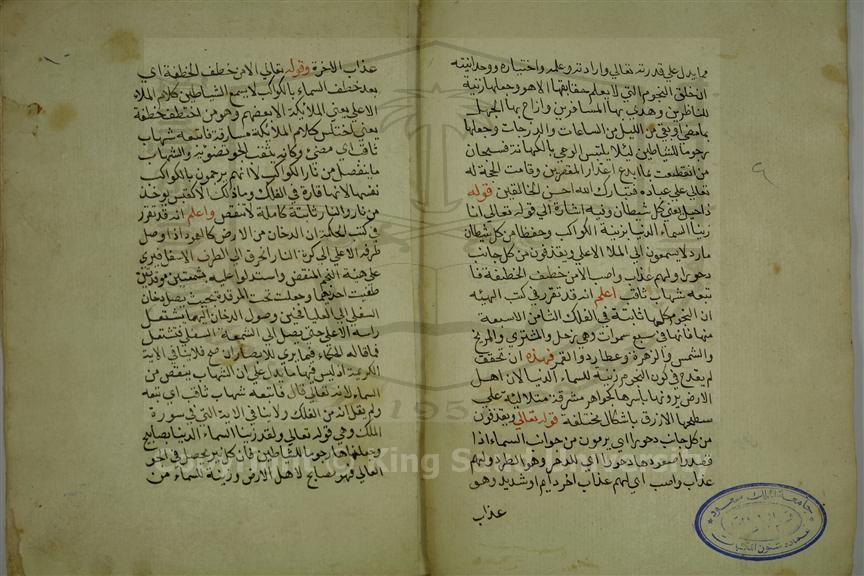 مما يدل علي قدرته تعالي وارادته وعلمه واختياره ووحدانيته
ان خلق النجوم التي لا يعلم حقايقها الا هو وجعلها زينة
للناظرين وهدي بها المسافرين وازاح بها الجهل
بما مضي او بقي من الليل من الساعات والدرجات وجعلها
رجوما للشياطين ليلا يلتبس الوحي بالكهانة فسبحان
من انقطعت بما ابدع اعذار المقصرين وقامت الحجة له
تعالي علي عباده فتبارك الله احسن الخالقين قوله
داحرا يعني كل شيطان وفيه اشارة الي قوله تعالي انا
زينا السماء الدنيا بزينة الكواكب وحفظا من كل شيطان
مارد لا يسمعون الي الملا الاعلي ويقذفون من كل جانب
دحورا ولهم عذاب واصب الا من خطف الخطفة فا
تبعه شهاب ثاقب اعلم انه قد تقرر في كتب الهيئه
ان النجوم كلها ثابتة في الفلك الثامن الا سبعة
منها فانها في سبع سموات وهي زحل والمشتري والمريخ
والشمس والزهرة وعطارد والقمر فهذه ان تحقق
لم يقدح في كون النجوم زينة للسماء الدنيا لان اهل
الارض يرونها باسرها كجواهر مشرقة متلالئة علي
سطحها الازرق باشكال مختلفة قوله تعالي ويقذفون
من كل جانب دحورا اي يرمون من جوانب السماء اذا
قصدوا صعودها دحورا اي للدحر وهو الطرد ولهم
عذاب واصب اي لهم عذاب اخر دايم او شديد وهو
عذاب
عذاب الاخرة وقوله تعالي الا من خطف الخطفة اي
بعد خطف السماء بالكواكب لا يسمع الشياطين كلام الملاء
الاعلي يعني الملائكة الا بعضهم وهو من اختطف خطفة
يعني اختلس كلام الملائكة مسارقة فاتبعه شهاب
ثاقب اي مضئ وكانه يثقب الجو بضوئه والشهاب
ما ينفصل من نار الكواكب لا انهم يرجمون بالكواكب
نفسها لانها قارة في الفلك وما ذلك الا كقبس يوخذ
من نار والنار ثابتة كاملة لا تنقص واعلم انه قد تقرر
في كتب الحكمة ان الدخان من الارض كالعود اذا وصل
طرفه الاعلي الي كرة النار احرق الي الطرف الاسفل فيري
علي هيئة النجم المنقض واستدلوا عليه بشمعتين موقدتين
طفئت احديهما وجعلت تحت الموقدة بحيث يصل دخان
السفلي الي العليا فحين وصول الدخان اليها يشتعل
راسه الاعلي حتي يصل الي الشمعة السفلي فتشتعل
فما قاله الحكماء فيما يري للابصار ان صح فلا ينافي الاية
الكريمة اذ ليس فيها ما يدل علي ان الشهاب ينقض من
السماء لانه تعالي قال فاتبعه شهاب ثاقب اي تبعه
ولم يقل انه من الفلك ولا ينافي الاية التي في سورة
الملك وهي قوله تعالي ولقد زينا السماء الدنيا بمصابيح
وجعلناها رجوما للشياطين فان كل نير يحصل في الجو
العالي فهو مصباح لاهل الارض وزينة للسماء من
جامعة الملك سعود
عمادة شئون المكتبات
Copyright © King Saud University
195